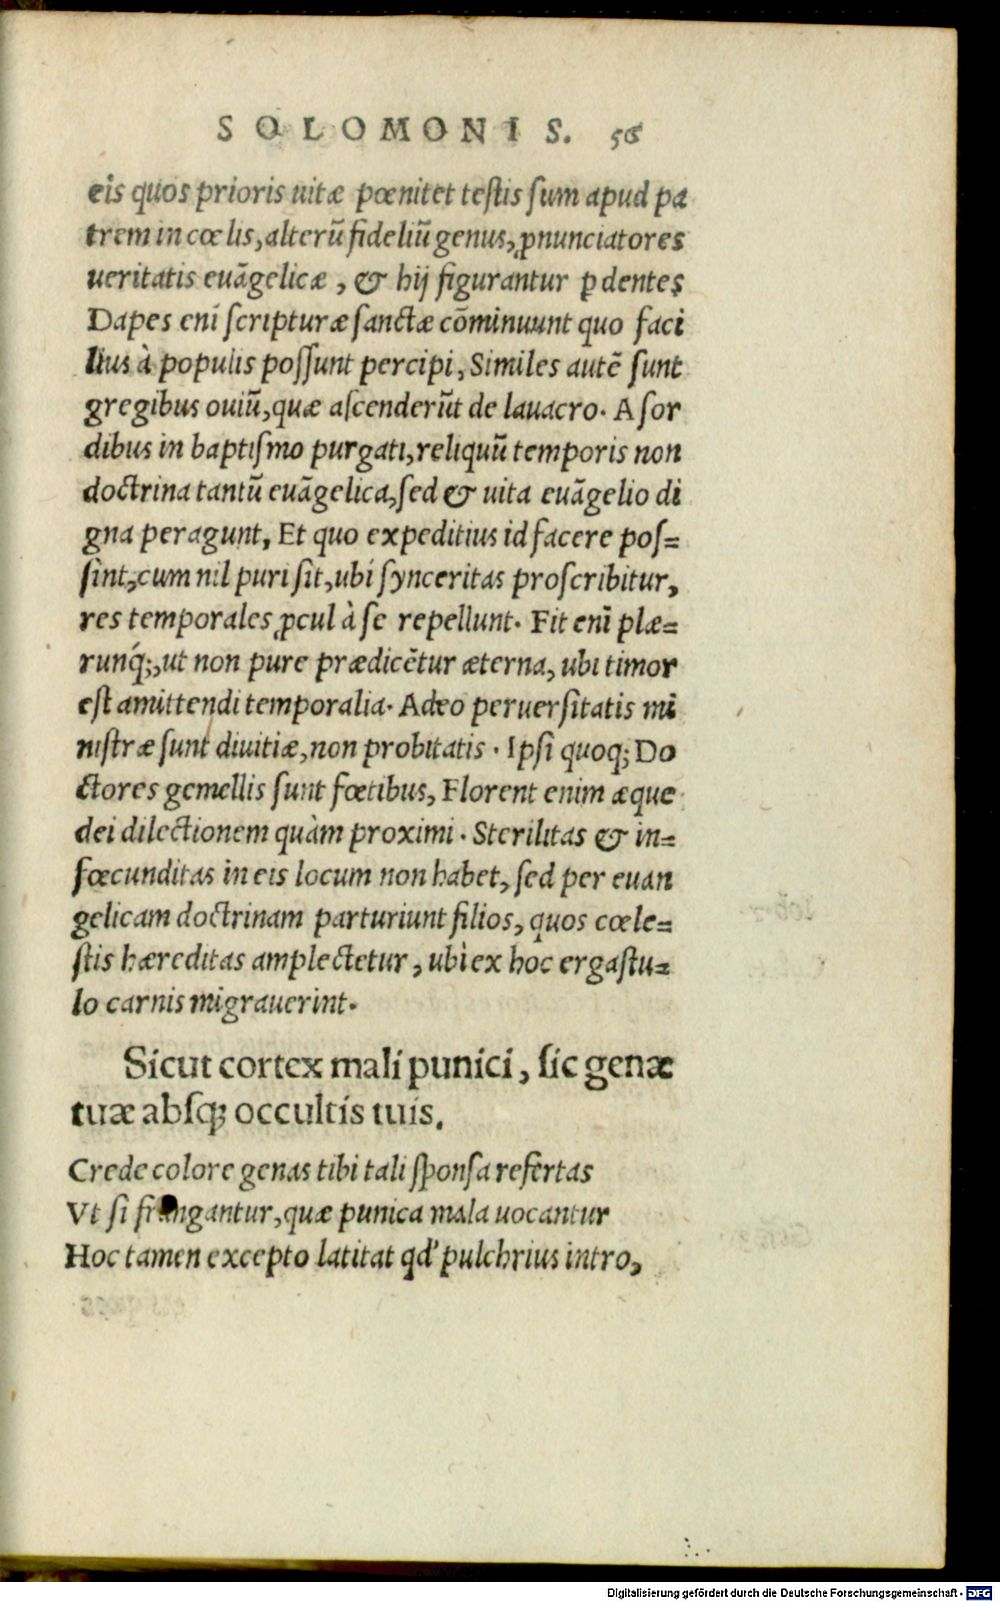 SOLOMONIS. 56
eis quos prioris uitæ pœnitet testis sum apud pa
trem in cœlis, alterũ fideliũ genus, ꝓnunciatores
ueritatis euãgelicæ, & hij figurantur ꝑ dentes
Dapes enĩ scripturæ sanctæ cõminuunt quo faci
lius à populis possunt percipi, Similes autẽ sunt
gregibus ouiũ, quæ ascenderũt de lauacro. A sor
dibus in baptismo purgati, reliquũ temporis non
doctrina tantũ euãgelica, sed & uita euãgelio di
gna peragunt, Et quo expeditius id facere pos=
sint, cum nil puri sit, ubi synceritas proscribitur,
res temporales ꝓcul à se repellunt. Fit enĩ plæ=
runq́;, ut non pure prædicẽtur æterna, ubi timor
est amittendi temporalia. Adeo peruersitatis mi
nistræ sunt diuitiæ, non probitatis. Ipsi quoq; Do
ctores gemellis sunt fœtibus, Florent enim æque
dei dilectionem quàm proximi. Sterilitas & in=
fœcunditas in eis locum non habet, sed per euan
gelicam doctrinam parturiunt filios, quos cœle=
stis hæreditas amplectetur, ubi ex hoc ergastu=
lo carnis migrauerint.
Sicut cortex mali punici, sic genæ
tuæ absq; occultis tuis.
Crede colore genas tibi tali sponsa refertas
Vt si frangantur, quæ punica mala uocantur
Hoc tamen excepto latitat qd' pulchrius intro,
Digitalisierung gefördert durch die Deutsche Forschungsgemeinschaft - DFG